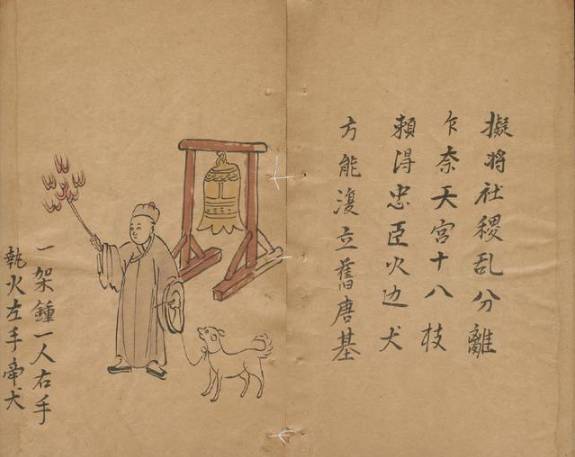 擬將社稷乱分離
乍奈天宮十八枝
賴得忠臣火边犬
方能復立舊唐基
一架鍾一人右手
執火左手帝犬